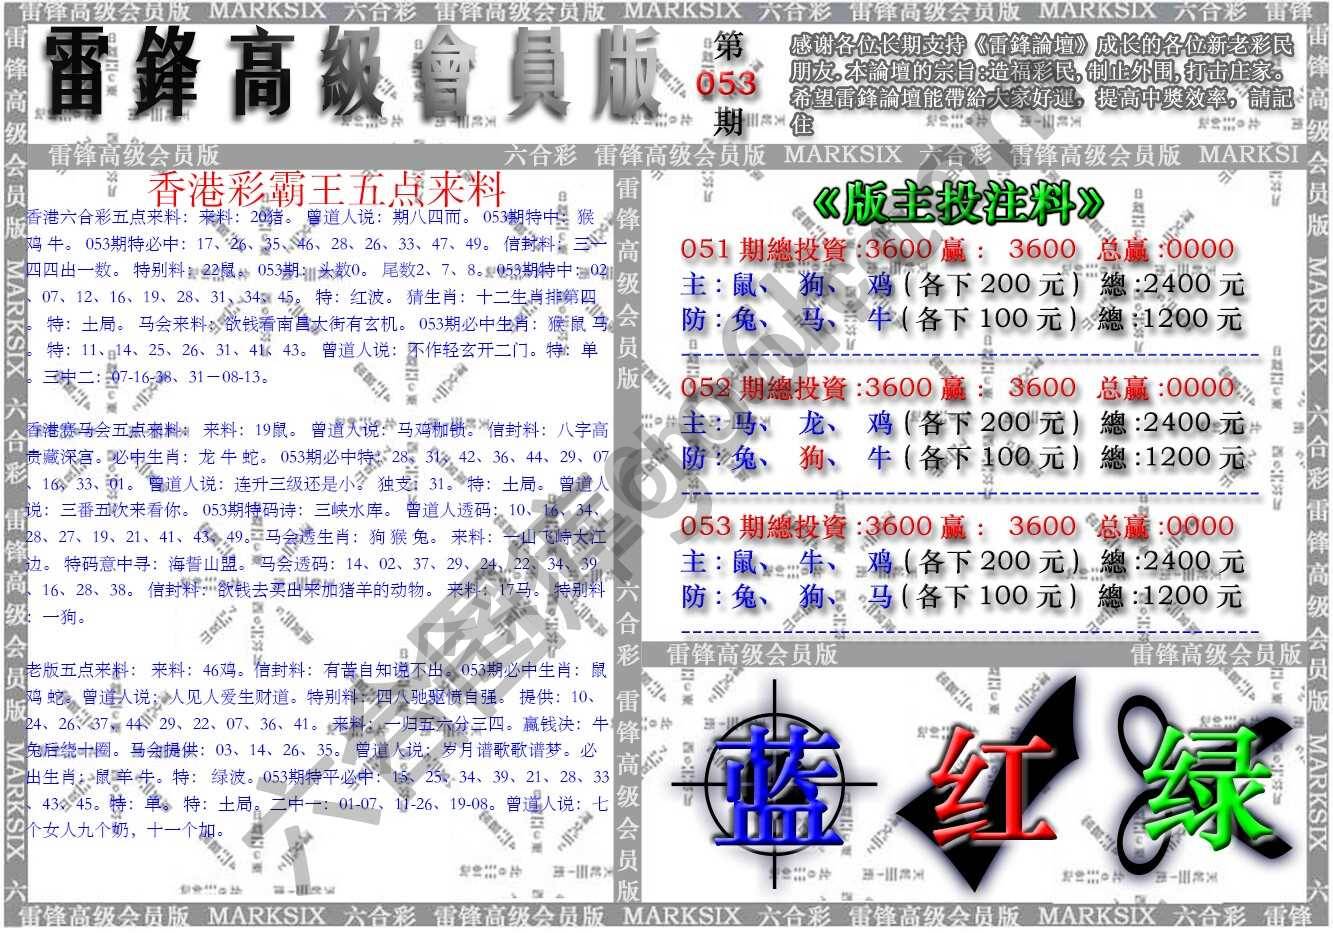 雷锋高级会员版 MARKSIX 六合彩 雷锋高级会员版 MARKSIX 六合彩 雷锋高级会员版 MARKSIX 六合彩 雷锋
雷鋒高級會員版
第
053
期
感谢各位长期支持《雷鋒論壇》成长的各位新老彩民
朋友.本論壇的宗旨:造福彩民,制止外围,打击庄家。
希望雷鋒論壇能帶給大家好運，提高中獎效率，請記
住
雷锋高级会员版 六合彩 雷锋高级会员版 MARKSIX 六合彩 雷锋高级会员版 MARKSI
香港彩霸王五点来料
香港六合彩五点来料：来料：20猪。 曾道人说：期八四而。 053期特中：猴
鸡 牛。 053期特必中：17、26、35、46、28、26、33、47、49。 信封料：三一
四四出一数。 特别料：22鼠。 053期：头数0。 尾数2、7、8。 053期特中：02
、07、12、16、19、28、31、34、45。 特：红波。 猜生肖：十二生肖排第四
。 特：土局。 马会来料：欲钱看南昌大街有玄机。 053期必中生肖：猴 鼠 马
。 特：11、14、25、26、31、41、43。 曾道人说：不作轻玄开二门。特：单
。三中二：07-16-38、31－08-13。
香港赛马会五点来料： 来料：19鼠。 曾道人说：马鸡枷锁。 信封料：八字高
贵藏深宫。必中生肖：龙 牛 蛇。 053期必中特：28、31、42、36、44、29、07
、16、33、01。 曾道人说：连升三级还是小。 独支：31。 特：土局。 曾道人
说：三番五次来看你。 053期特码诗：三峡水库。 曾道人透码：10、16、34、
28、27、19、21、41、43、49。 马会透生肖：狗 猴 兔。 来料：一山飞峙大江
边。 特码意中寻：海誓山盟。 马会透码：14、02、37、29、24、22、34、39
、16、28、38。 信封料：欲钱去买出来加猪羊的动物。 来料：17马。 特别料
：一狗。
老版五点来料： 来料：46鸡。信封料：有苦自知说不出。053期必中生肖：鼠
鸡 蛇。曾道人说：人见人爱生财道。特别料：四八驰驱愤自强。 提供：10、
24、26、37、44、29、22、07、36、41。 来料：一归五六分三四。赢钱决：牛
兔后绕十圈。马会提供：03、14、26、35。 曾道人说：岁月谱歌歌谱梦。必
出生肖：鼠 羊 牛。特： 绿波。053期特平必中：15、25、34、39、21、28、33
、43、45。特：单。 特：土局。二中一：01-07、11-26、19-08。曾道人说：七
个女人九个奶，十一个加。
《版主投注料》
051 期總投資 :3600 赢 ： 3600 总赢 :0000
主 : 鼠、 狗、 鸡 ( 各下 200 元 ) 總 :2400 元
防 : 兔、 马、 牛 ( 各下 100 元 ) 總 :1200 元
052 期總投資 :3600 赢 ： 3600 总赢 :0000
主 : 马、 龙、 鸡 ( 各下 200 元 ) 總 :2400 元
防 : 兔、 狗、 牛 ( 各下 100 元 ) 總 :1200 元
053 期總投資 :3600 赢 ： 3600 总赢 :0000
主 : 鼠、 牛、 鸡 ( 各下 200 元 ) 總 :2400 元
防 : 兔、 狗、 马 ( 各下 100 元 ) 總 :1200 元
雷锋高级会员版 雷锋高级会员版
蓝 红 绿
雷锋高级会员版 MARKSIX 六合彩 雷锋高级会员版 MARKSIX 六
雷锋高级会员版 六合彩 雷锋高级会员版
雷锋高级会员版 MARKSIX 六合彩 雷锋高级会员版 MARKSIX 六
雷锋高级会员版 MARKSIX 六合彩 雷锋高级会员版 MARKSIX 六合彩 雷锋高级会员版 MARKSIX 六合彩 雷锋